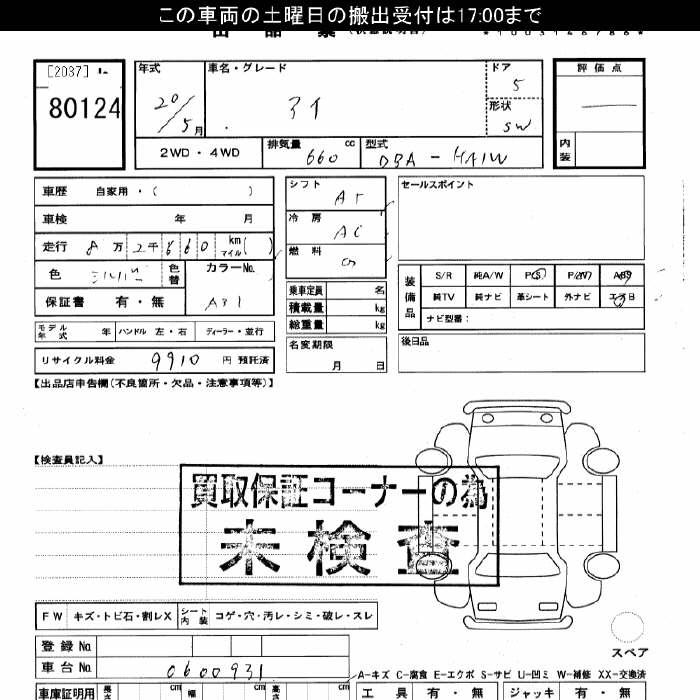 この車両の土曜日の搬出受付は17:00まで
[2037]
80124
年式
車名・グレード
ドア
評価点
20/5月
アイ
5
形状
SW
2WD・4WD
排気量
660
cc
型式
DBA-HA1W
内装
車歴 自家用・( )
シフト
AT
セールスポイント
車検 年 月
冷房
AC
走行 8万2千660 km マイル( )
燃料
色
色替
カラーNo.
A31
乗車定員 名
装備品
S/R 純A/W PS P/W AB
純TV 純ナビ 革シート 外ナビ エアB
保証書 有・無
積載量 kg
総重量 kg
ナビ型番:
モデル年式 年 ハンドル 左・右 ディーラー・並行
名変期限
月 日
後日品
リサイクル料金 9910 円 預託済
【出品店申告欄(不良箇所・欠品・注意事項等)】
【検査員記入】
買取保証コーナーの為
未検査
FW キズ・トビ石・割レX シート内装 コゲ・穴・汚レ・シミ・破レ・スレ
スペア
登録No.
車台No. 0600931
A-キズ C-腐食 E-エクボ S-サビ U-凹ミ W-補修 XX-交換済
車庫証明用 長さ cm 幅 cm 高さ cm
工具 有・無 ジャッキ 有・無